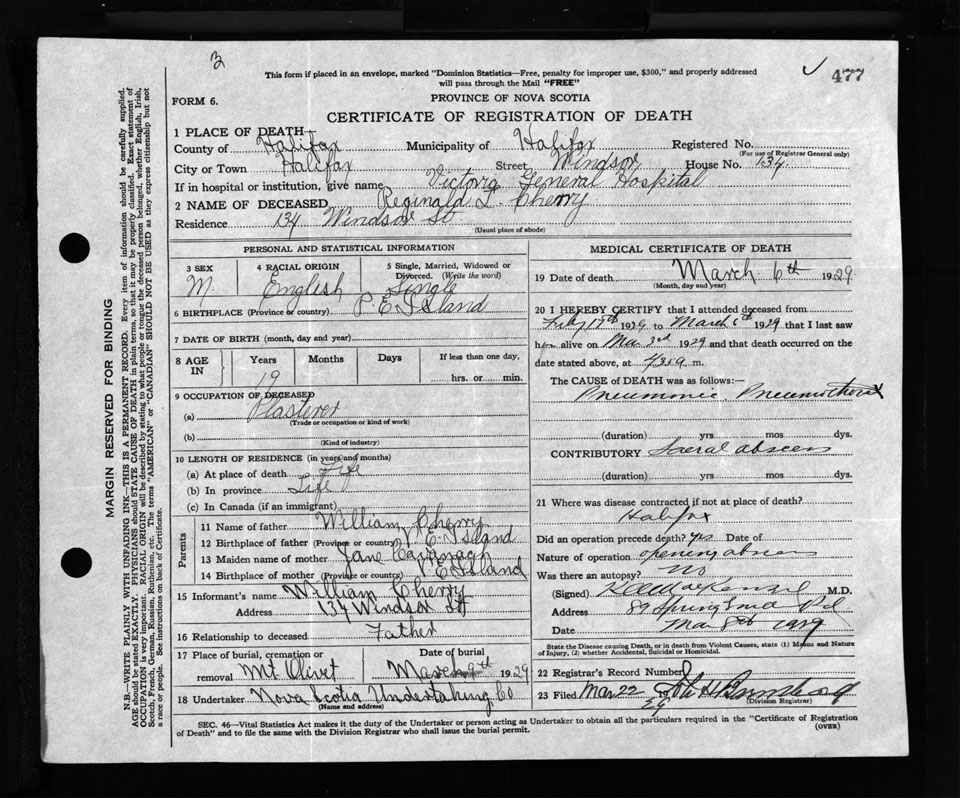 3
477
This form if placed in an envelope, marked "Dominion Statistics—Free, penalty for improper use, $300," and properly addressed
will pass through the Mail "FREE"
FORM 6.
PROVINCE OF NOVA SCOTIA
CERTIFICATE OF REGISTRATION OF DEATH
1 PLACE OF DEATH
County of Halifax Municipality of Halifax Registered No.
(For use of Registrar General only)
City or Town Halifax Street Windsor House No. 134
If in hospital or institution, give name Victoria General Hospital
2 NAME OF DECEASED Reginald L. Cherry
Residence 134 Windsor St
(Usual place of abode)
PERSONAL AND STATISTICAL INFORMATION
3 SEX M.
4 RACIAL ORIGIN English
5 Single, Married, Widowed or Divorced. (Write the word) Single
6 BIRTHPLACE (Province or country) P. E. Island
7 DATE OF BIRTH (month, day and year)
8 AGE IN Years 19 Months Days If less than one day, hrs. or min.
9 OCCUPATION OF DECEASED
(a) Plasterer
(Trade or occupation or kind of work)
(b)
(Kind of industry)
10 LENGTH OF RESIDENCE (in years and months)
(a) At place of death Life
(b) In province Life
(c) In Canada (if an immigrant)
Parents
11 Name of father William Cherry
12 Birthplace of father (Province or country) P. E. Island
13 Maiden name of mother Jane Cavanagh
14 Birthplace of mother (Province or country) P. E. Island
15 Informant's name William Cherry
Address 134 Windsor St
16 Relationship to deceased Father
17 Place of burial, cremation or removal Mt Olivet
Date of burial March 9th 1929
18 Undertaker Nova Scotia Undertaking Co
(Name and address)
MEDICAL CERTIFICATE OF DEATH
19 Date of death March 6th 1929
(Month, day and year)
20 I HEREBY CERTIFY that I attended deceased from
Feby 17th 1929 to March 6th 1929 that I last saw
him alive on Mar 3rd 1929 and that death occurred on the
date stated above, at m.
The CAUSE of DEATH was as follows:
Pneumonia Pneumothorax
(duration) yrs mos dys.
CONTRIBUTORY Sacral abscess
(duration) yrs. mos. dys.
21 Where was disease contracted if not at place of death?
Halifax
Did an operation precede death? yes Date of
Nature of operation opening abscess
Was there an autopsy? No
(Signed) M.D.
Address 89 Spring Garden Rd
Date Mar 8th 1929
State the Disease causing Death, or in death from Violent Causes, state (1) Means and Nature
of Injury, (2) whether Accidental, Suicidal or Homicidal.
22 Registrar's Record Number
23 Filed Mar 22 1929
(Division Registrar)
SEC. 46—Vital Statistics Act makes it the duty of the Undertaker or person acting as Undertaker to obtain all the particulars required in the "Certificate of Registration
of Death" and to file the same with the Division Registrar who shall issue the burial permit.
(OVER)
MARGIN RESERVED FOR BINDING
N.B.—WRITE PLAINLY WITH UNFADING INK—THIS IS A PERMANENT RECORD. Every item of information should be carefully supplied.
AGE should be stated EXACTLY. PHYSICIANS should STATE CAUSE OF DEATH in plain terms, so that it may be properly classified. Exact statement of
OCCUPATION is very important. RACIAL ORIGIN will be described by stating to what people or tongue the deceased person belonged, whether English, Irish,
Scotch, French, German, Russian, Ruthenian, etc. The terms "AMERICAN" or "CANADIAN" SHOULD NOT BE USED as they express citizenship but not
a race or people. See instructions on back of Certificate.